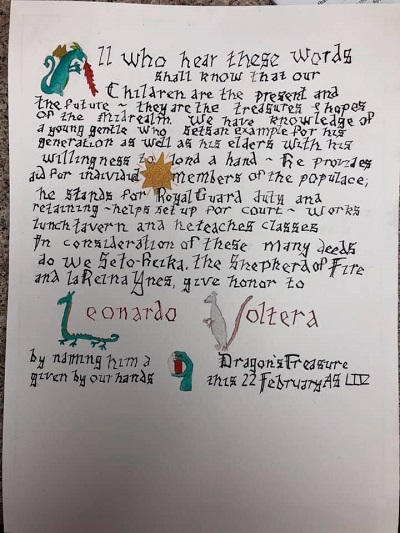 All who hear these words
shall know that our
Children are the present and
the future ~ they are the treasures & hopes
of the midrealm. We have knowledge of
a young gentle who sets an example for his
generation as well as his elders with his
willingness to lend a hand ~ He provides
aid for individual members of the populace;
he stands for Royal Guard duty and
retaining ~ helps set up for court ~ works
lunch tavern and he teaches classes
In consideration of these many deeds
do we Seto-Reika, the Shepherd of Fire
and la Reina Ynes, give honor to
Leonardo Voltera
by naming him a Dragon's Treasure
given by our hands this 22 February AS LIV